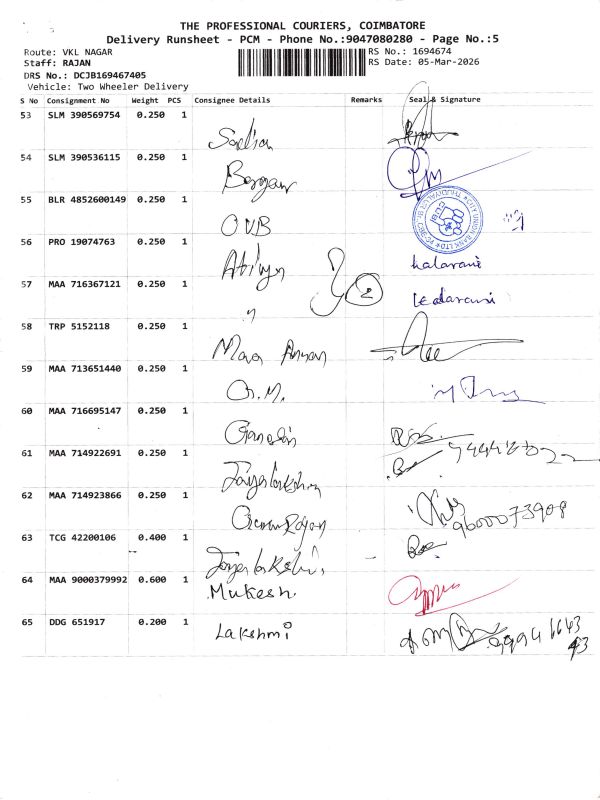 THE PROFESSIONAL COURIERS, COIMBATORE
Delivery Runsheet - PCM - Phone No.:9047080280 - Page No.:5
Route: VKL NAGAR
RS No.: 1694674
Staff: RAJAN
RS Date: 05-Mar-2026
DRS No.: DCJB169467405
Vehicle: Two Wheeler Delivery
S No Consignment No Weight PCS Consignee Details Remarks Seal & Signature
53 SLM 390569754 0.250 1
54 SLM 390536115 0.250 1
55 BLR 4852600149 0.250 1 OVB
56 PRO 19074763 0.250 1 kalarani
57 MAA 716367121 0.250 1 2
58 TRP 5152118 0.250 1
59 MAA 713651440 0.250 1
60 MAA 716695147 0.250 1 Ganesan
61 MAA 714922691 0.250 1 Jayalakshmi
62 MAA 714923866 0.250 1 9600073908
63 TCG 42200106 0.400 1 Jayalakshmi
64 MAA 9000379992 0.600 1 Mukesh.
65 DDG 651917 0.200 1 Lakshmi